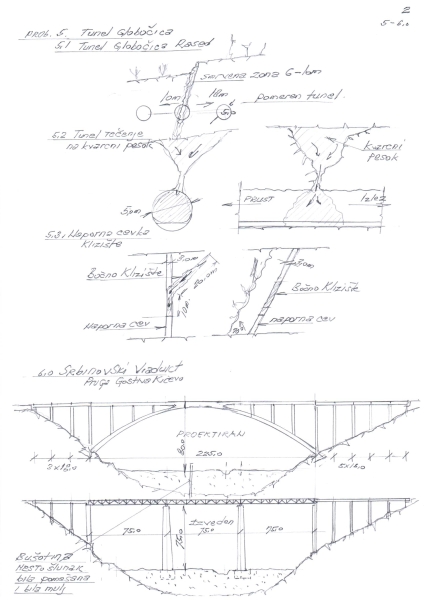 E
5-6.0
PROB. 5. Tunel Globočica
5.1 Tunel Globočica Rased
Servena zona 6-10m
10m 18m
pomeren tunel
5.2 Tunel tečenje
na kvarcni pesok
kvarcni
pesok
5,0m
PRUST
Izlez
5.3. Naporna cevka
Klizište
3.0m
Bočno Klizište
20.0m
Naporna cev
Bočno Klizište
naporna cev
6.0 Srbinovski Viadukt
Pruga Gostivar Kičevo
PROEKTIRAN
225.0
5x16.0
Izveden
75.0 75.0 75.0
75.0
Bušotina
mesto šlunak
bila pomešana
i bila mulj